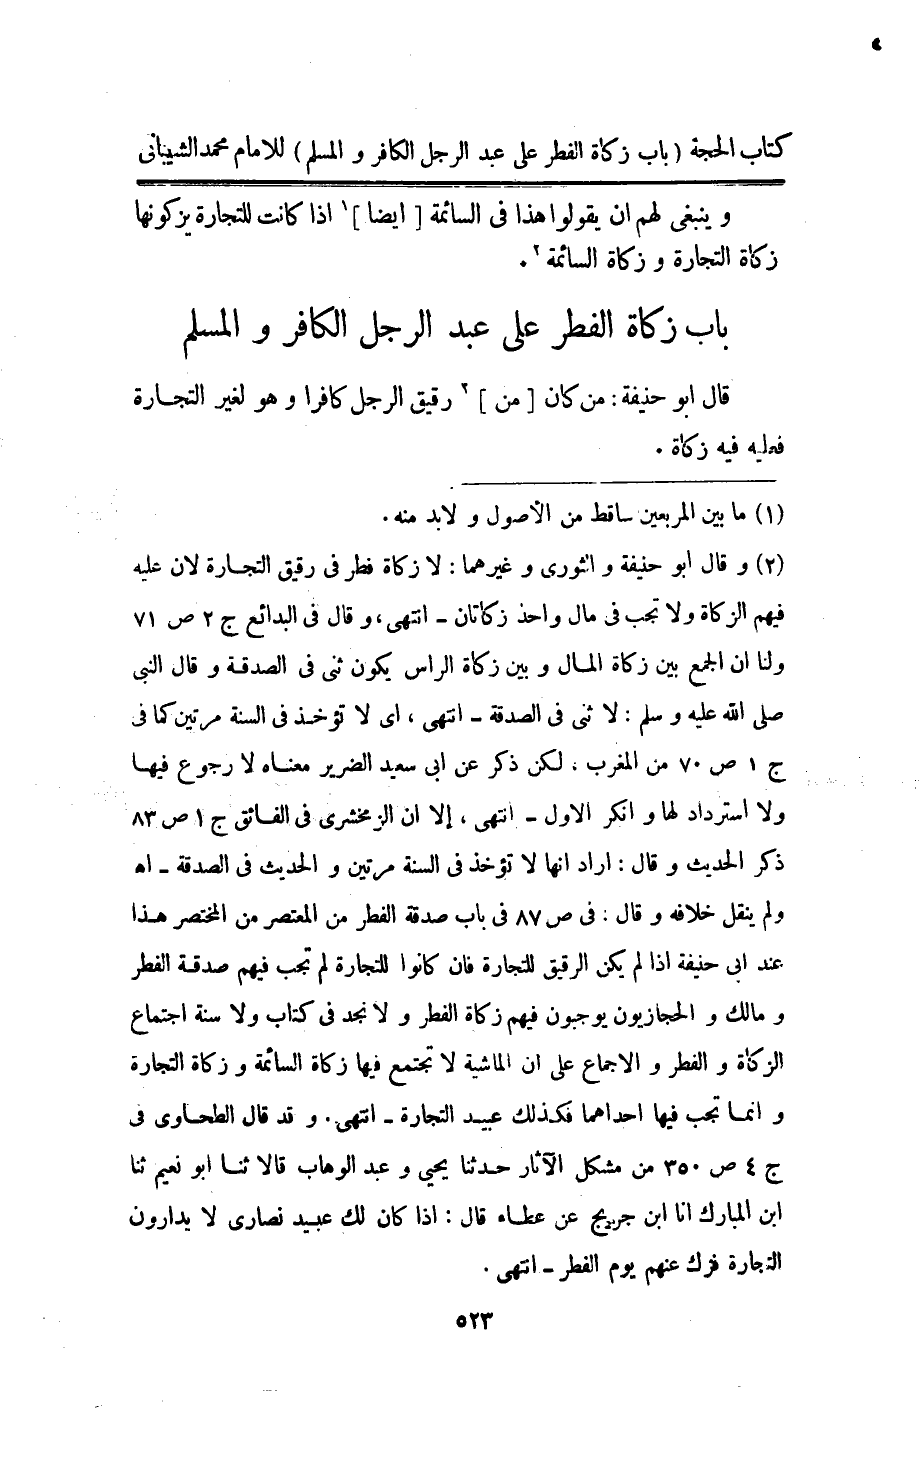 كتاب الحجة (باب زكاة الفطر على عبد الرجل الكافر و المسلم) للامام محمد الشيبانى
و ينبغى لهم ان يقولوا هذا فى السائمة [ ايضا ]١ اذا كانت للتجارة يزكونها
زكاة التجارة و زكاة السائمة٢ .
باب زكاة الفطر على عبد الرجل الكافر و المسلم
قال ابو حنيفة : من كان [ من ]٢ رقيق الرجل كافرا و هو لغير التجارة
فعليه فيه زكاة .
(١) ما بين المربعين ساقط من الأصول و لابد منه .
(٢) و قال ابو حنيفة و الثورى و غيرهما : لا زكاة فطر فى رقيق التجارة لان عليه
فيهم الزكاة ولا تجب فى مال واحد زكاتان ـ انتهى ، و قال فى البدائع ج ٢ ص ٧١
ولنا ان الجمع بين زكاة المال و بين زكاة الراس يكون ثنى فى الصدقة و قال النبى
صلى الله عليه و سلم : لا ثنى فى الصدقة ـ انتهى ، اى لا تؤخذ فى السنة مرتين كما فى
ج ١ ص ٧٠ من المغرب ، لكن ذكر عن ابى سعيد الضرير معناه لا رجوع فيها
ولا استرداد لها و انكر الاول ـ انتهى ، إلا ان الزمخشرى فى الفائق ج ١ ص ٨٣
ذكر الحديث و قال : اراد انها لا تؤخذ فى السنة مرتين و الحديث فى الصدقة ـ اه
ولم ينقل خلافه و قال : فى ص ٨٧ فى باب صدقة الفطر من المعتصر من المختصر هذا
عند ابى حنيفة اذا لم يكن الرقيق للتجارة فان كانوا للتجارة لم تجب فيهم صدقة الفطر
و مالك و الحجازيون يوجبون فيهم زكاة الفطر و لا نجد فى كتاب ولا سنة اجتماع
الزكاة و الفطر و الاجماع على ان الماشية لا تجتمع فيها زكاة السائمة و زكاة التجارة
و انما تجب فيها احداهما فكذلك عبيد التجارة ـ انتهى . و قد قال الطحاوى فى
ج ٤ ص ٣٥٠ من مشكل الآثار حدثنا يحيى و عبد الوهاب قالا ثنا ابو نعيم ثنا
ابن المبارك انا ابن جريج عن عطاء قال : اذا كان لك عبيد نصارى لا يدارون
التجارة فزك عنهم يوم الفطر ـ انتهى .
٥٢٣